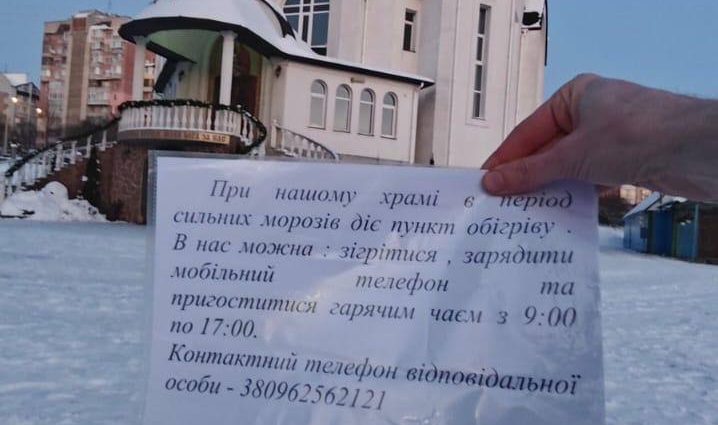 При нашому храмі в період
сильних морозів діє пункт обігріву .
В нас можна : зігрітися , зарядити
мобільний телефон та
пригоститися гарячим чаєм з 9:00
по 17:00.
Контактний телефон відповідальної
особи - 380962562121